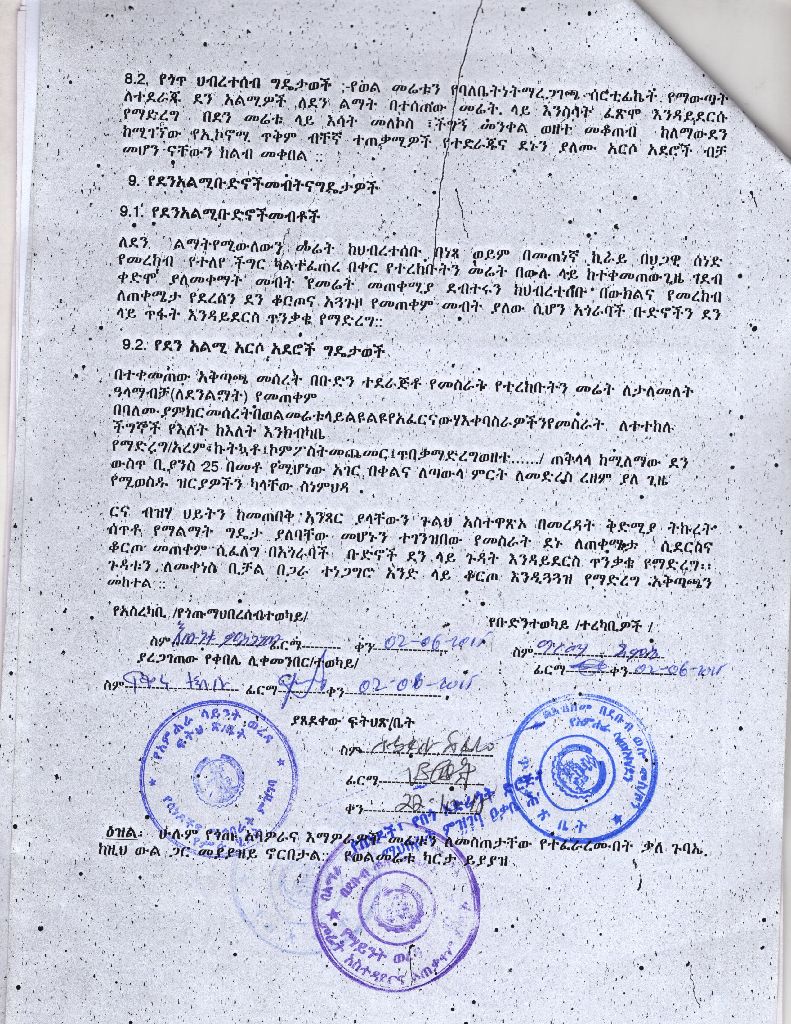 8.2. የጎጥ ህብረተሰብ ግዴታወች ፡-የወል መሬቱን የባለቤትነትማረጋገጫ ሰርቲፊኬት የማውጣት
ለተደራጁ ደን አልሚዎች ለደን ልማት በተሰጠው መሬት ላይ እንስሳት ፈጽሞ እንዳይደርሱ
የማድረግ በደን መሬቱ ላይ እሳት መለኮስ ፣ችግኝ መንቀል ወዘተ መቆጠብ ከለማውደን
ከሚገኘው የኢኮኖሚ ጥቅም ብቸኛ ተጠቃሚዎች የተደራጁና ደኑን ያለሙ አርሶ አደሮች ብቻ
መሆናቸውን ከልብ መቀበል ፡፡
9. የደንአልሚቡድኖችመብትናግዴታዎች
9.1. የደንአልሚቡድኖችመብቶች
ለደን ልማትየሚውለውን መሬት ከህብረተሰቡ በነጻ ወይም በመጠነኛ ኪራይ በህጋዊ ሰነድ
የመረከብ የተለየ ችግር ካልተፈጠረ በቀር የተረከቡትን መሬት በውሉ ላይ ከተቀመጠውጊዜ ገደብ
ቀድሞ ያለመቀማት መብት የመሬት መጠቀሚያ ደብተሩን ከህብረተሰቡ በውክልና የመረከብ
ለጠቀሜታ የደረሰን ደን ቆርጦና አጓጉዞ የመጠቀም መብት ያለው ሲሆን አጎራባች ቡድኖችን ደን
ላይ ጥፋት እንዳይደርስ ጥንቃቄ የማድረግ፡፡
9.2. የደን አልሚ አርሶ አደሮች ግዴታወች
በተቀመጠው አቅጣጫ መሰረት በቡድን ተደራጅቶ የመስራት የተረከቡትን መሬት ለታለመለት
ዓላማብቻ(ለደንልማት) የመጠቀም
በባለሙያምክርመሰረትበወልመሬቱላይልዩልዩየአፈርናውሃእቀባስራዎችንየመስራት ለተተከሉ
ችግኞች የእለት ከእለት እንክብካቤ
የማድረግ/አረም፣ኩትኳቶ፣ኮምፖስትመጨመር፣ጥበቃማድረግወዘተ....../ ጠቅላላ ከሚለማው ደን
ውስጥ ቢያንስ 25 በመቶ የሚሆነው አገር በቀልና ለጣውላ ምርት ለመድረስ ረዘም ያለ ጊዜ
የሚወስዱ ዝርያዎችን ካላቸው ስነምህዳ
ርና ብዝሃ ህይትን ከመጠበቅ አንጻር ያላቸውን ጉልህ አስተዋጽኦ በመረዳት ቅድሚያ ትኩረት
ሰጥቶ የማልማት ግዴታ ያለባቸው መሆኑን ተገንዝበው የመስራት ደኑ ለጠቀሜታ ሲደርስና
ቆርጦ መጠቀም ሲፈልግ በአጎራባች ቡድኖች ደን ላይ ጉዳት እንዳይደርስ ጥንቃቄ የማድረግ፡፡
ጉዳቱን ለመቀነስ ቢቻል በጋራ ተነጋግሮ አንድ ላይ ቆርጦ እንዲጓጓዝ የማድረግ አቅጣጫን
መከተል ፡፡
የአስረካቢ /የጎጡማህበረሰብተወካይ/
የቡድንተወካይ /ተረካቢዎች /
ስም ፊርማ ቀን 02-06-2015
ስም
ያረጋገጠው የቀበሌ ሊቀመንበር/ተወካይ/
ፊርማ ቀን 02-06-2015
ስም ፊርማ ቀን 02-06-2015
ያጸደቀው ፍትህጽ/ቤት
ስም
ፊርማ
ቀን
የአምሐራ ሳይንት ወረዳ
ፍትህ ጽ/ቤት
ዕዝል፡ ሁሉም የጎጡ አባዎራና እማዎራዎች መሬቱን ለመስጠታቸው የተፈራረሙበት ቃለ ጉባኤ
ከዚህ ውል ጋር መያያዝይ ኖርበታል፡፡ የወልመሬቱ ካርታ ይያያዝ